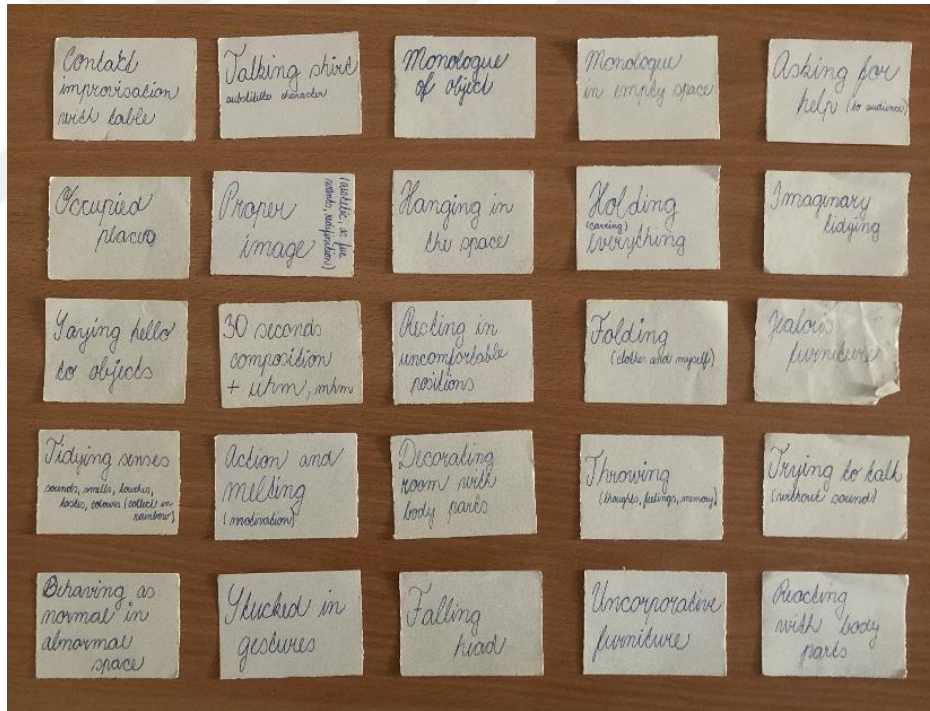 Contact
improvisation
with table
Talking shirt
substitute character
Monologue
of object
Monologue
in empty space
Asking for
help (to audience)
Occupied
place
Proper
image
Hanging in
the space
Holding
(carring)
everything
Imaginary
tidying
Saying hello
to objects
30 seconds
composition
+ uhm, mhm
Resting in
uncomfortable
positions
Folding
(clothes and myself)
Jealous
furniture
Tidying senses
sounds, smells, touches,
tastes, colours (collect in
rainbow)
Action and
melting
(motivation)
Decorating
room with
body parts
Throwing
(thoughts, feelings, memory)
Trying to talk
(without sound)
Behaving as
normal in
abnormal
space
Stucked in
gestures
Falling
head
Uncorporative
furniture
Reacting
with body
parts